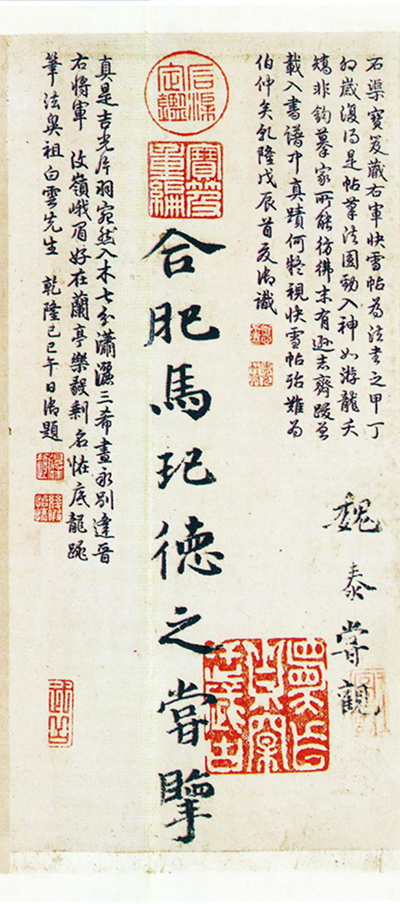 石渠寶笈藏右軍快雪帖為法書之甲丁
卯歲復得是帖筆法圓勁入神如游龍夭
矯非鉤摹家所能彷彿末有遜志齋跋曾
載入書譜中真蹟何疑視快雪帖殆難為
伯仲矣乾隆戊辰首夏御識
魏泰嘗觀
石渠定鑑
寶笈重編
合肥馬玘德之嘗覽
真是吉光片羽宛然入木七分瀟灑三希晝永別逢晉
右將軍 汶嶺峨眉好在蘭亭樂毅剩名恠底龍跳
筆法祖白雲先生 乾隆己巳午日御題